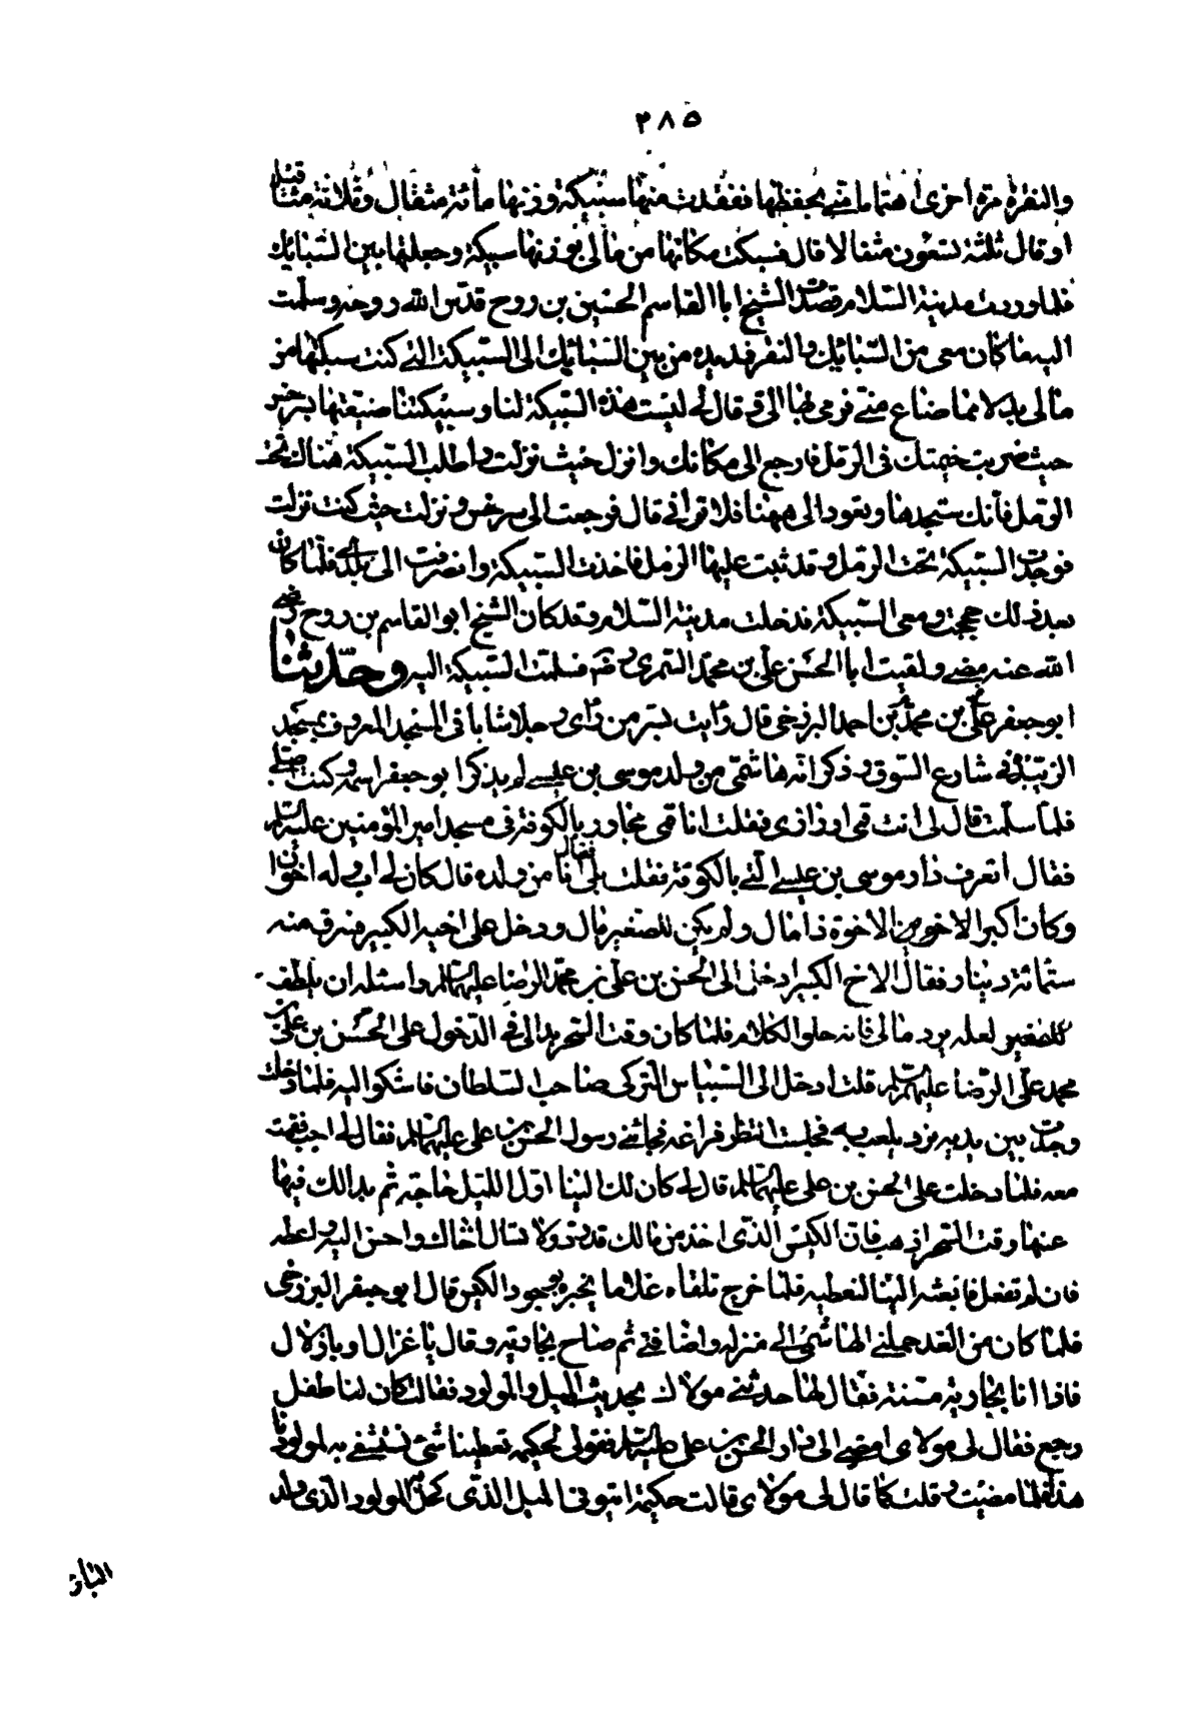 ٣٨٥
والنقرة مرة اخرى اهتماما منى بحفظها ففقدت منها سبيكة وزنها مائة مثقال وثلاثة مثاقيل
او قال ثلثة وتسعون مثقالا قال فسبكت مكانها من مالى بوزنها سبيكة وجعلتها بين السبائك
فلما وردت مدينة السلام قصدت الشيخ ابا القاسم الحسين بن روح قدس الله روحه وسلمت
اليه ما كان معى من السبائك والنقر فمد يده من بين السبائك الى السبيكة التى كنت سبكتها من
مالى بدلا مما ضاع منى فرمى بها الى وقال لى ليست هذه السبيكة لنا وسبيكتنا ضيعتها بسرخس
حيث ضربت خيمتك فى الرمل فارجع الى مكانك وانزل حيث نزلت واطلب السبيكة هناك تحت
الرمل فانك ستجدها وتعود الى ههنا فلا ترانى قال فرجعت الى سرخس ونزلت حيث كنت نزلت
فوجدت السبيكة تحت الرمل وقد نبت عليها الرمل فاخذت السبيكة وانصرفت الى بلدى فلما كان
بعد ذلك حججت ومعى السبيكة فدخلت مدينة السلام وقد كان الشيخ ابو القاسم بن روح رضى
الله عنه مضى ولقيت ابا الحسن على بن محمد السمرى رضى فسلمت السبيكة اليه وحدثنا
ابو جعفر على بن محمد بن احمد البزرخى قال رايت بسر من راى رجلا شابا فى المسجد المعروف بمسجد
الزبيدة فى شارع السوق وذكر انه هاشمى من ولد موسى بن عيسى لم يذكر ابو جعفر اسمه وكنت اصلى
فلما سلمت قال لى انت قمى او رازى فقلت انا قمى مجاور بالكوفة فى مسجد امير المؤمنين عليه السلام
فقال اتعرف دار موسى بن عيسى التى بالكوفة فقلت بلى فقال انا من ولده قال كان لى اب له اخوان
وكان اكبر الاخوين الاخوة ذا مال ولم يكن للصغير مال ودخل على اخيه الكبير فسرق منه
ستمائة دينار فقال الاخ الكبير ادخل الى الحسن بن على بن محمد الرضا عليهم السلام واسئله ان يلطف
للصغير لعله يرد مالى فانه حلو الكلام فلما كان وقت السحر بدا لى فى الدخول على الحسن بن على بن
محمد على الرضا عليهم السلام قلت ادخل الى السنباس التركى صاحب السلطان فاشكو اليه فلما دخلت
وجدت بين يديه نرد يلعب به فجلست انتظر فراغه فجائنى رسول الحسن بن على عليهما السلام فقال لى اجب فقمت
معه فلما دخلت على الحسن بن على عليهما السلام قال لى كان لك الينا اول الليل حاجة ثم بدا لك فيها
عنها وقت السحر اذهب فان الكيس الذى اخذ من مالك قد رد ولا تسال اخاك واحسن اليه واعطه
فان لم تفعل فابعثه الينا لنعطيه فلما خرج تلقاه غلاما يخبره بوجود الكيس قال ابو جعفر البزرخى
فلما كان من الغد حملنى الهاشمى الى منزله واضافنى ثم صاح بجاريته وقال يا غزال او يا زلال
فاذا انا بجارية مسنة فقال لها حدثى مولاك بحديث الميل والمولود فقالت كان لنا طفل
وجع فقال لى مولاى امضى الى دار الحسن بن على عليه السلام فقولى لحكيمة تعطينا شئ نستشفى به لمولودنا
هذا فلما مضيت وقلت كما قال لى مولاى قالت حكيمة ايتونى الميل الذى كحل المولود الذى ولد